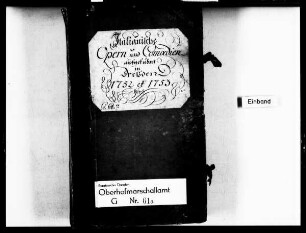 Italiänische
Opern und Comoedien
aufgeführet
in
Dresden
1752 et 1753
Einband
Oberhofmarschallamt
G Nr. 61a